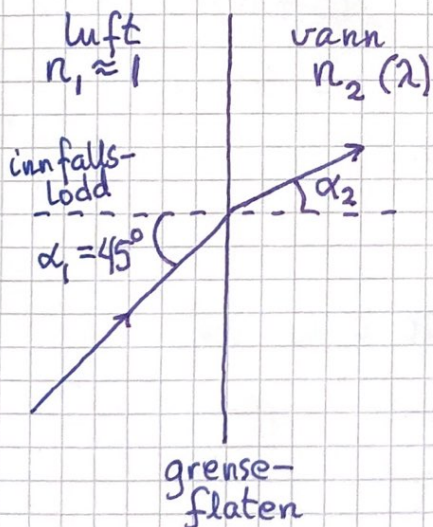 luft
n₁ ≈ 1
vann
n₂ (λ)
innfalls-
lodd
α₁ = 45°
α₂
grense-
flaten